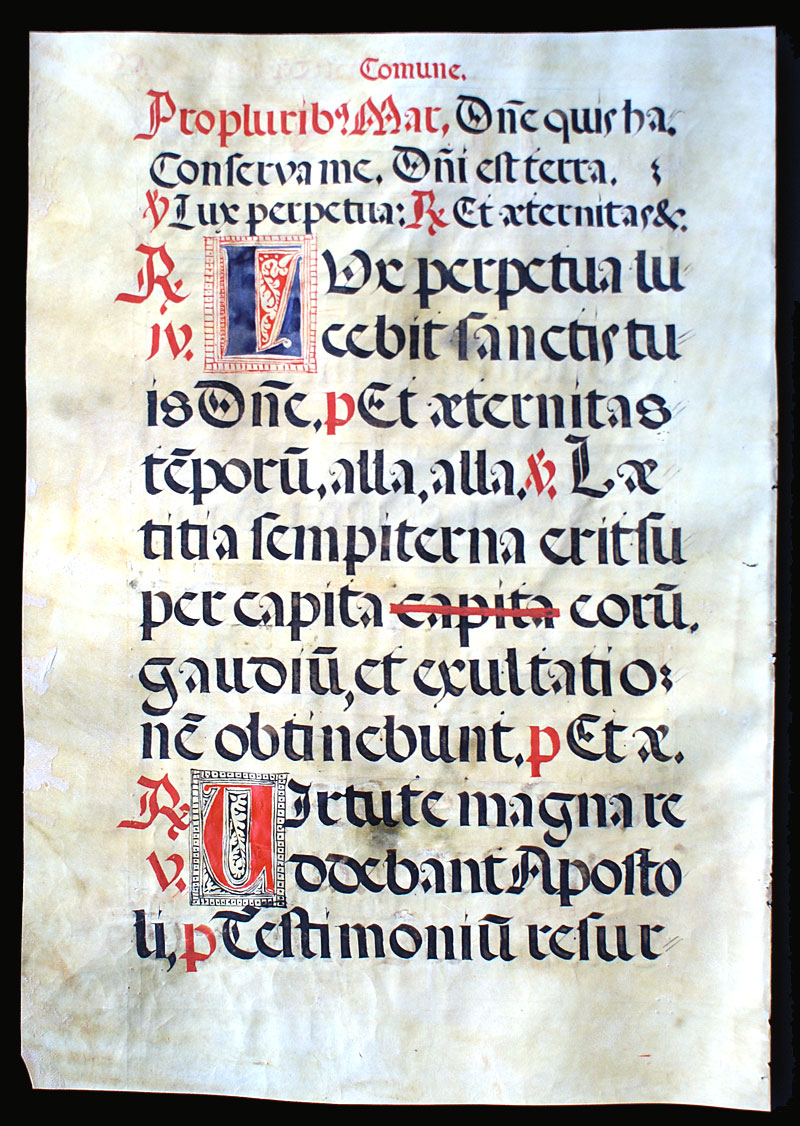 Comune.
Pro pluribꝰ Mar, Dñe quis ha.
Conserva me. Dñi est terra.
℣ Lux perpetua: ℟ Et æternitas &c.
℟. LUx perpetua lu
iv. cebit sanctis tu
is Dñe, p Et æternitas
tẽporũ, alla, alla, ℣. Læ
titia sempiterna erit su
per capita capita eorũ,
gaudiũ, et exultatio
nẽ obtinebunt, p Et æ.
℟ VIrtute magna re
v. ddebant Aposto
li, p Testimoniũ resur